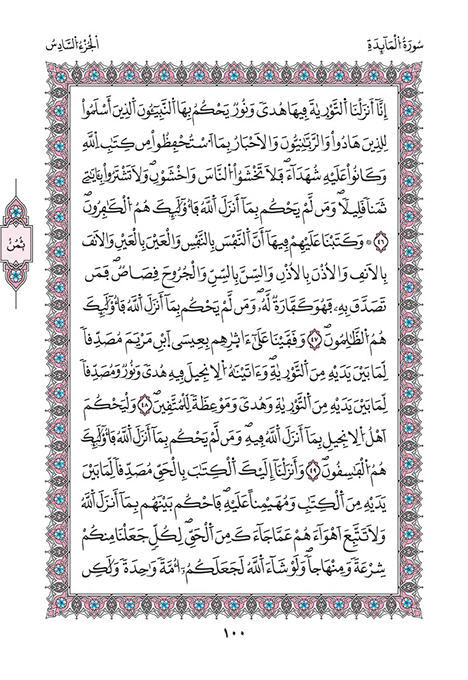 سُورَةُ الْمَآئِدَةِ
الْجُزْءُ السَّادِسُ
إِنَّآ أَنزَلْنَا اَ۬لتَّوْرٰيةَ فِيهَا هُدىٗ وَنُورٞ يَحْكُمُ بِهَا اَ۬لنَّبِيٓـُٔونَ اَ۬لذِينَ أَسْلَمُواْ
لِلذِينَ هَادُواْ وَالرَّبَّٰنِيُّونَ وَالَاحْبَارُ بِمَا اَ۟سْتُحْفِظُواْ مِن كِتَٰبِ اِ۬للَّهِ
وَكَانُواْ عَلَيْهِ شُهَدَآءَۖ فَلَا تَخْشَوُاْ اُ۬لنَّاسَ وَاخْشَوْنِۖ وَلَا تَشْتَرُواْ بِـَٔايَٰتِے
ثَمَناٗ قَلِيلاٗۖ وَمَن لَّمْ يَحْكُم بِمَآ أَنزَلَ اَ۬للَّهُ فَأُوْلَٰٓئِكَ هُمُ اُ۬لْكَٰفِرُونَۖ
٤٦ وَكَتَبْنَا عَلَيْهِمْ فِيهَآ أَنَّ اَ۬لنَّفْسَ بِالنَّفْسِ وَالْعَيْنَ بِالْعَيْنِ وَالَانفَ
بِالَانفِ وَالُاذْنَ بِالُاذْنِ وَالسِّنَّ بِالسِّنِّ وَالْجُرُوحَ قِصَاصٞۖ فَمَن
تَصَدَّقَ بِهِۦ فَهُوَ كَفَّارَةٞ لَّهُۥۖ وَمَن لَّمْ يَحْكُم بِمَآ أَنزَلَ اَ۬للَّهُ فَأُوْلَٰٓئِكَ
هُمُ اُ۬لظَّٰلِمُونَۖ ٤٧ وَقَفَّيْنَا عَلَىٰٓ ءَاثٰ۪رِهِم بِعِيسَى اَ۪بْنِ مَرْيَمَ مُصَدِّقاٗ
لِّمَا بَيْنَ يَدَيْهِ مِنَ اَ۬لتَّوْرٰيةِۖ وَءَاتَيْنَٰهُ اُ۬لِانجِيلَ فِيهِ هُدىٗ وَنُورٞ وَمُصَدِّقاٗ
لِّمَا بَيْنَ يَدَيْهِ مِنَ اَ۬لتَّوْرٰيةِ وَهُدىٗ وَمَوْعِظَةٗ لِّلْمُتَّقِينَۖ ٤٨ وَلْيَحْكُمَ
اَهْلُ اُ۬لِانجِيلِ بِمَآ أَنزَلَ اَ۬للَّهُ فِيهِۖ وَمَن لَّمْ يَحْكُم بِمَآ أَنزَلَ اَ۬للَّهُ فَأُوْلَٰٓئِكَ
هُمُ اُ۬لْفَٰسِقُونَۖ ٤٩ وَأَنزَلْنَآ إِلَيْكَ اَ۬لْكِتَٰبَ بِالْحَقِّ مُصَدِّقاٗ لِّمَا بَيْنَ
يَدَيْهِ مِنَ اَ۬لْكِتَٰبِ وَمُهَيْمِناً عَلَيْهِۖ فَاحْكُم بَيْنَهُم بِمَآ أَنزَلَ اَ۬للَّهُ
وَلَا تَتَّبِعَ اَهْوَآءَهُمْ عَمَّا جَآءَكَ مِنَ اَ۬لْحَقِّۖ لِكُلّٖ جَعَلْنَا مِنكُمْ
شِرْعَةٗ وَمِنْهَاجاٗۖ وَلَوْ شَآءَ اَ۬للَّهُ لَجَعَلَكُمُۥٓ أُمَّةٗ وَٰحِدَةٗ وَلَٰكِن
ثُمُنُ
١٠٠